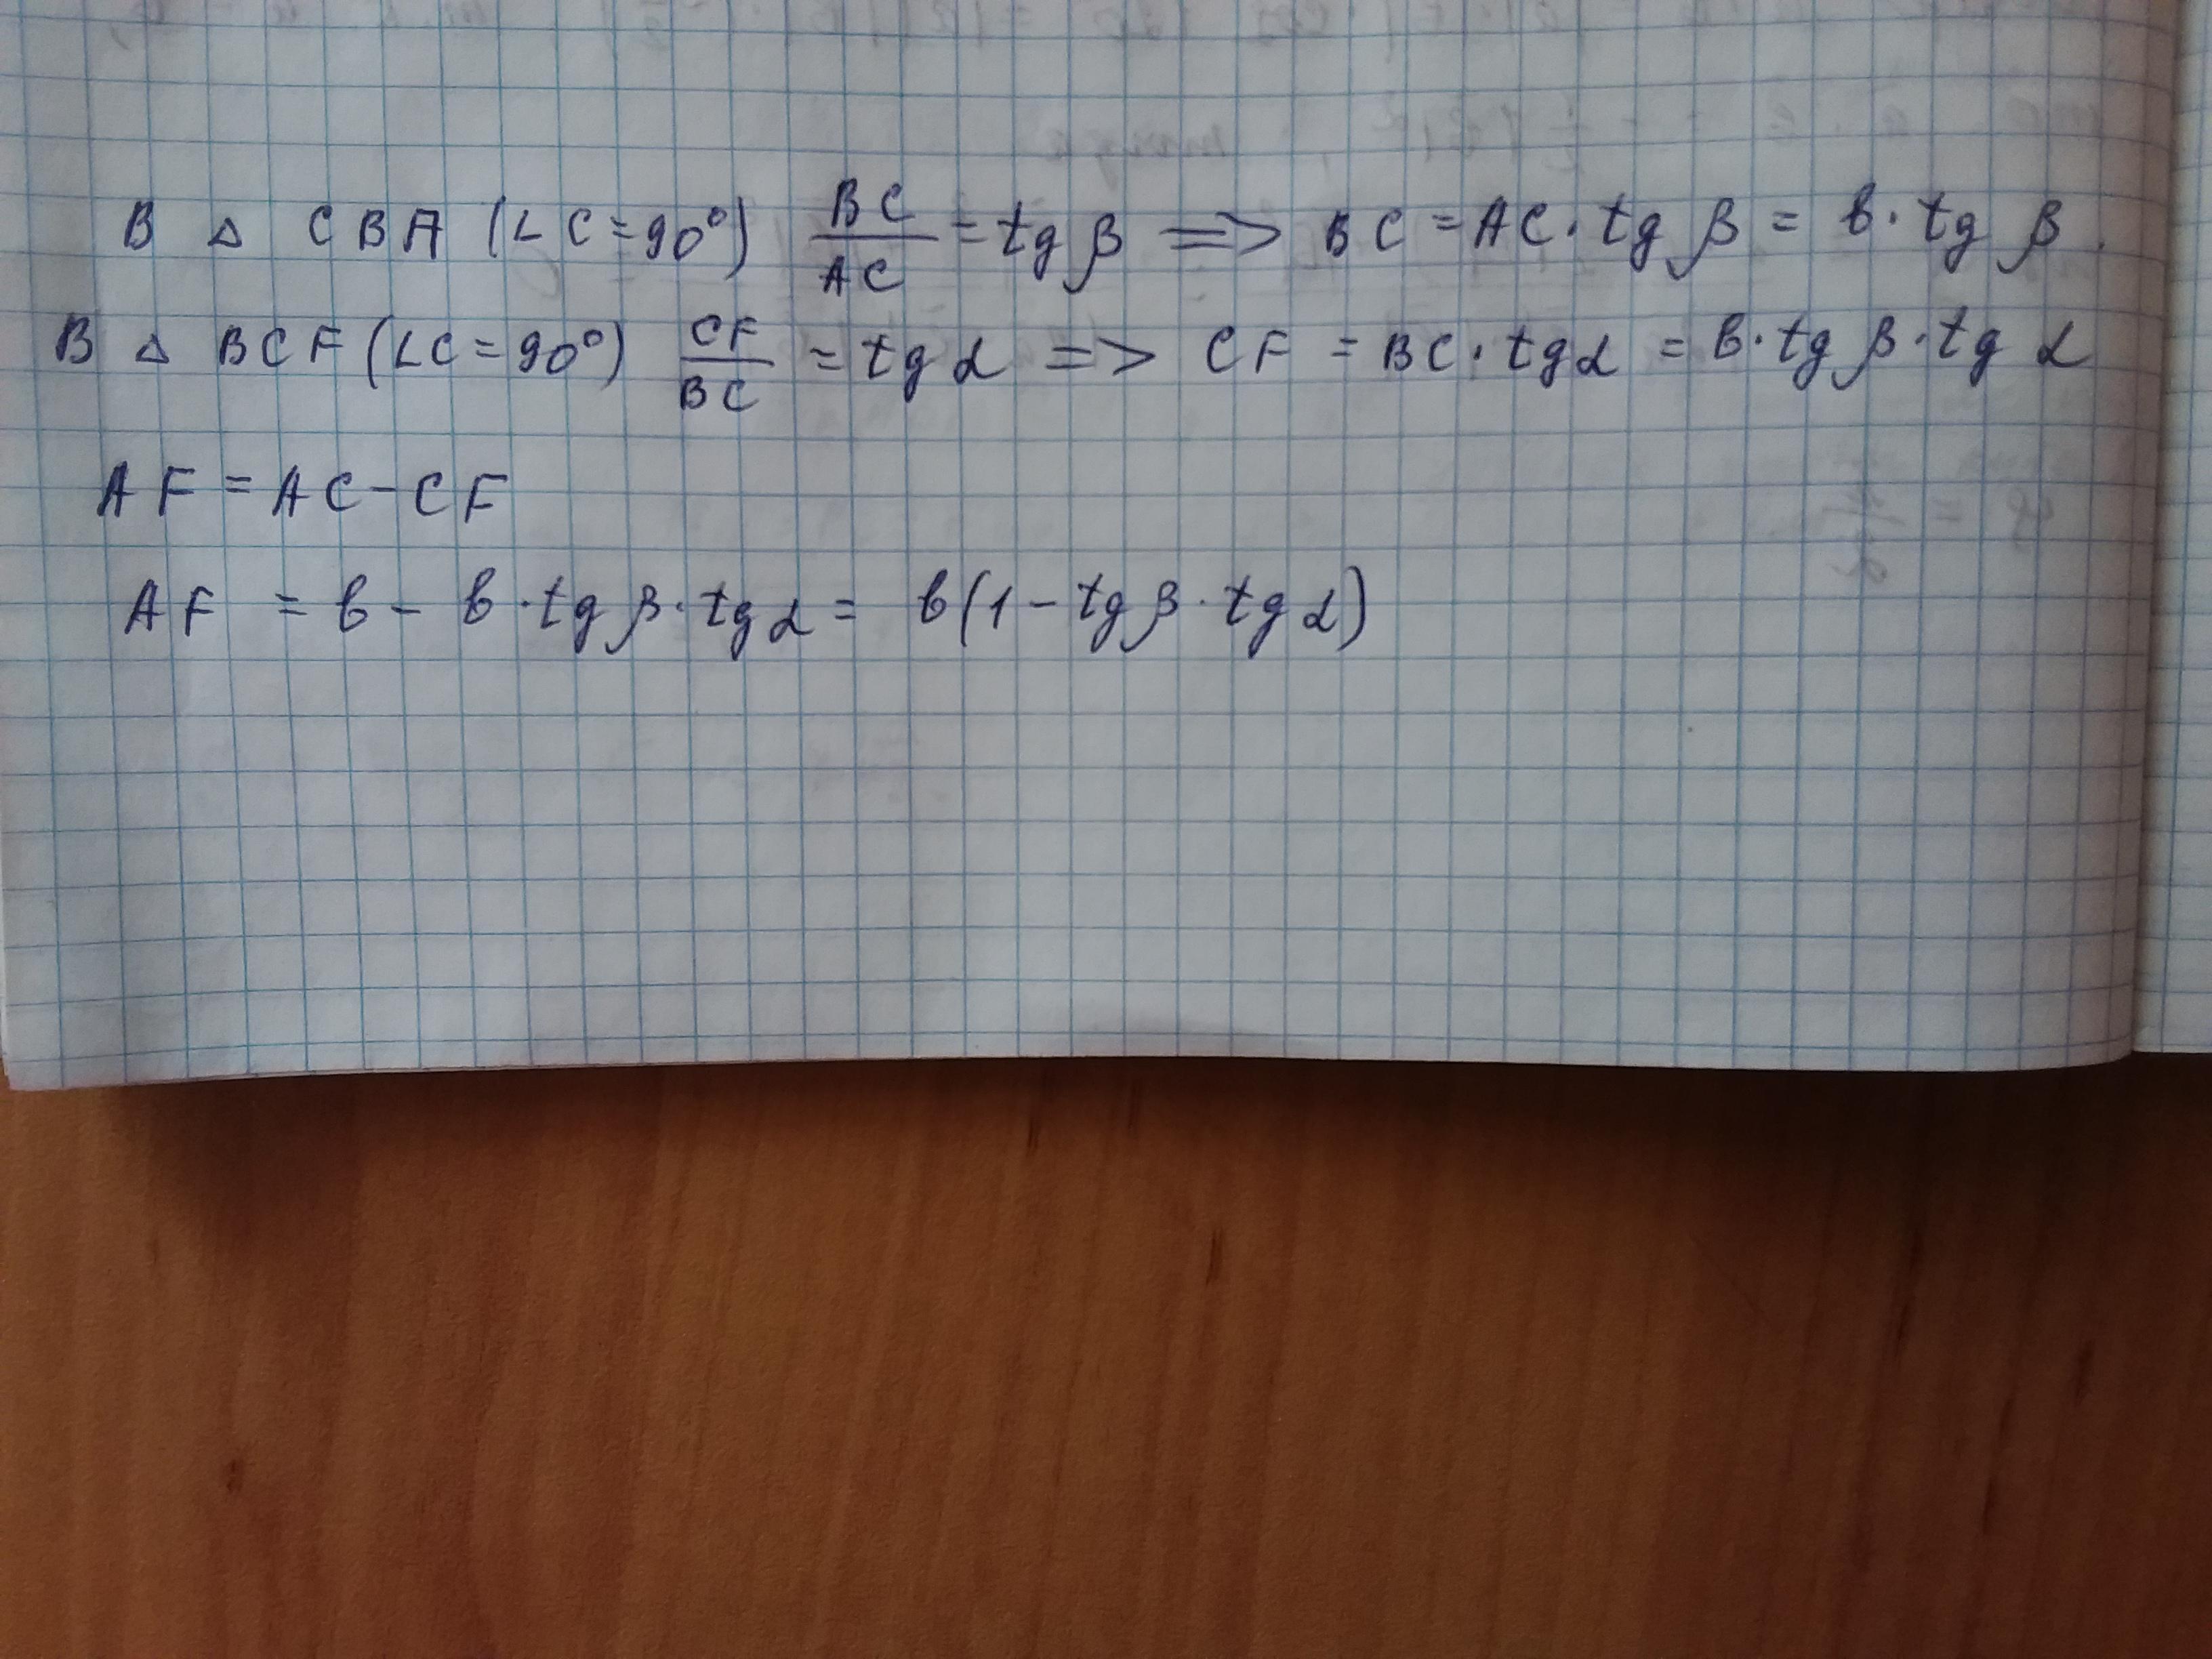 В △ CBA (∠C=90°) BC/AC = tg β => BC = AC · tg β = b · tg β.
В △ BCF (∠C=90°) CF/BC = tg α => CF = BC · tg α = b · tg β · tg α
AF = AC - CF
AF = b - b · tg β · tg α = b(1 - tg β · tg α)